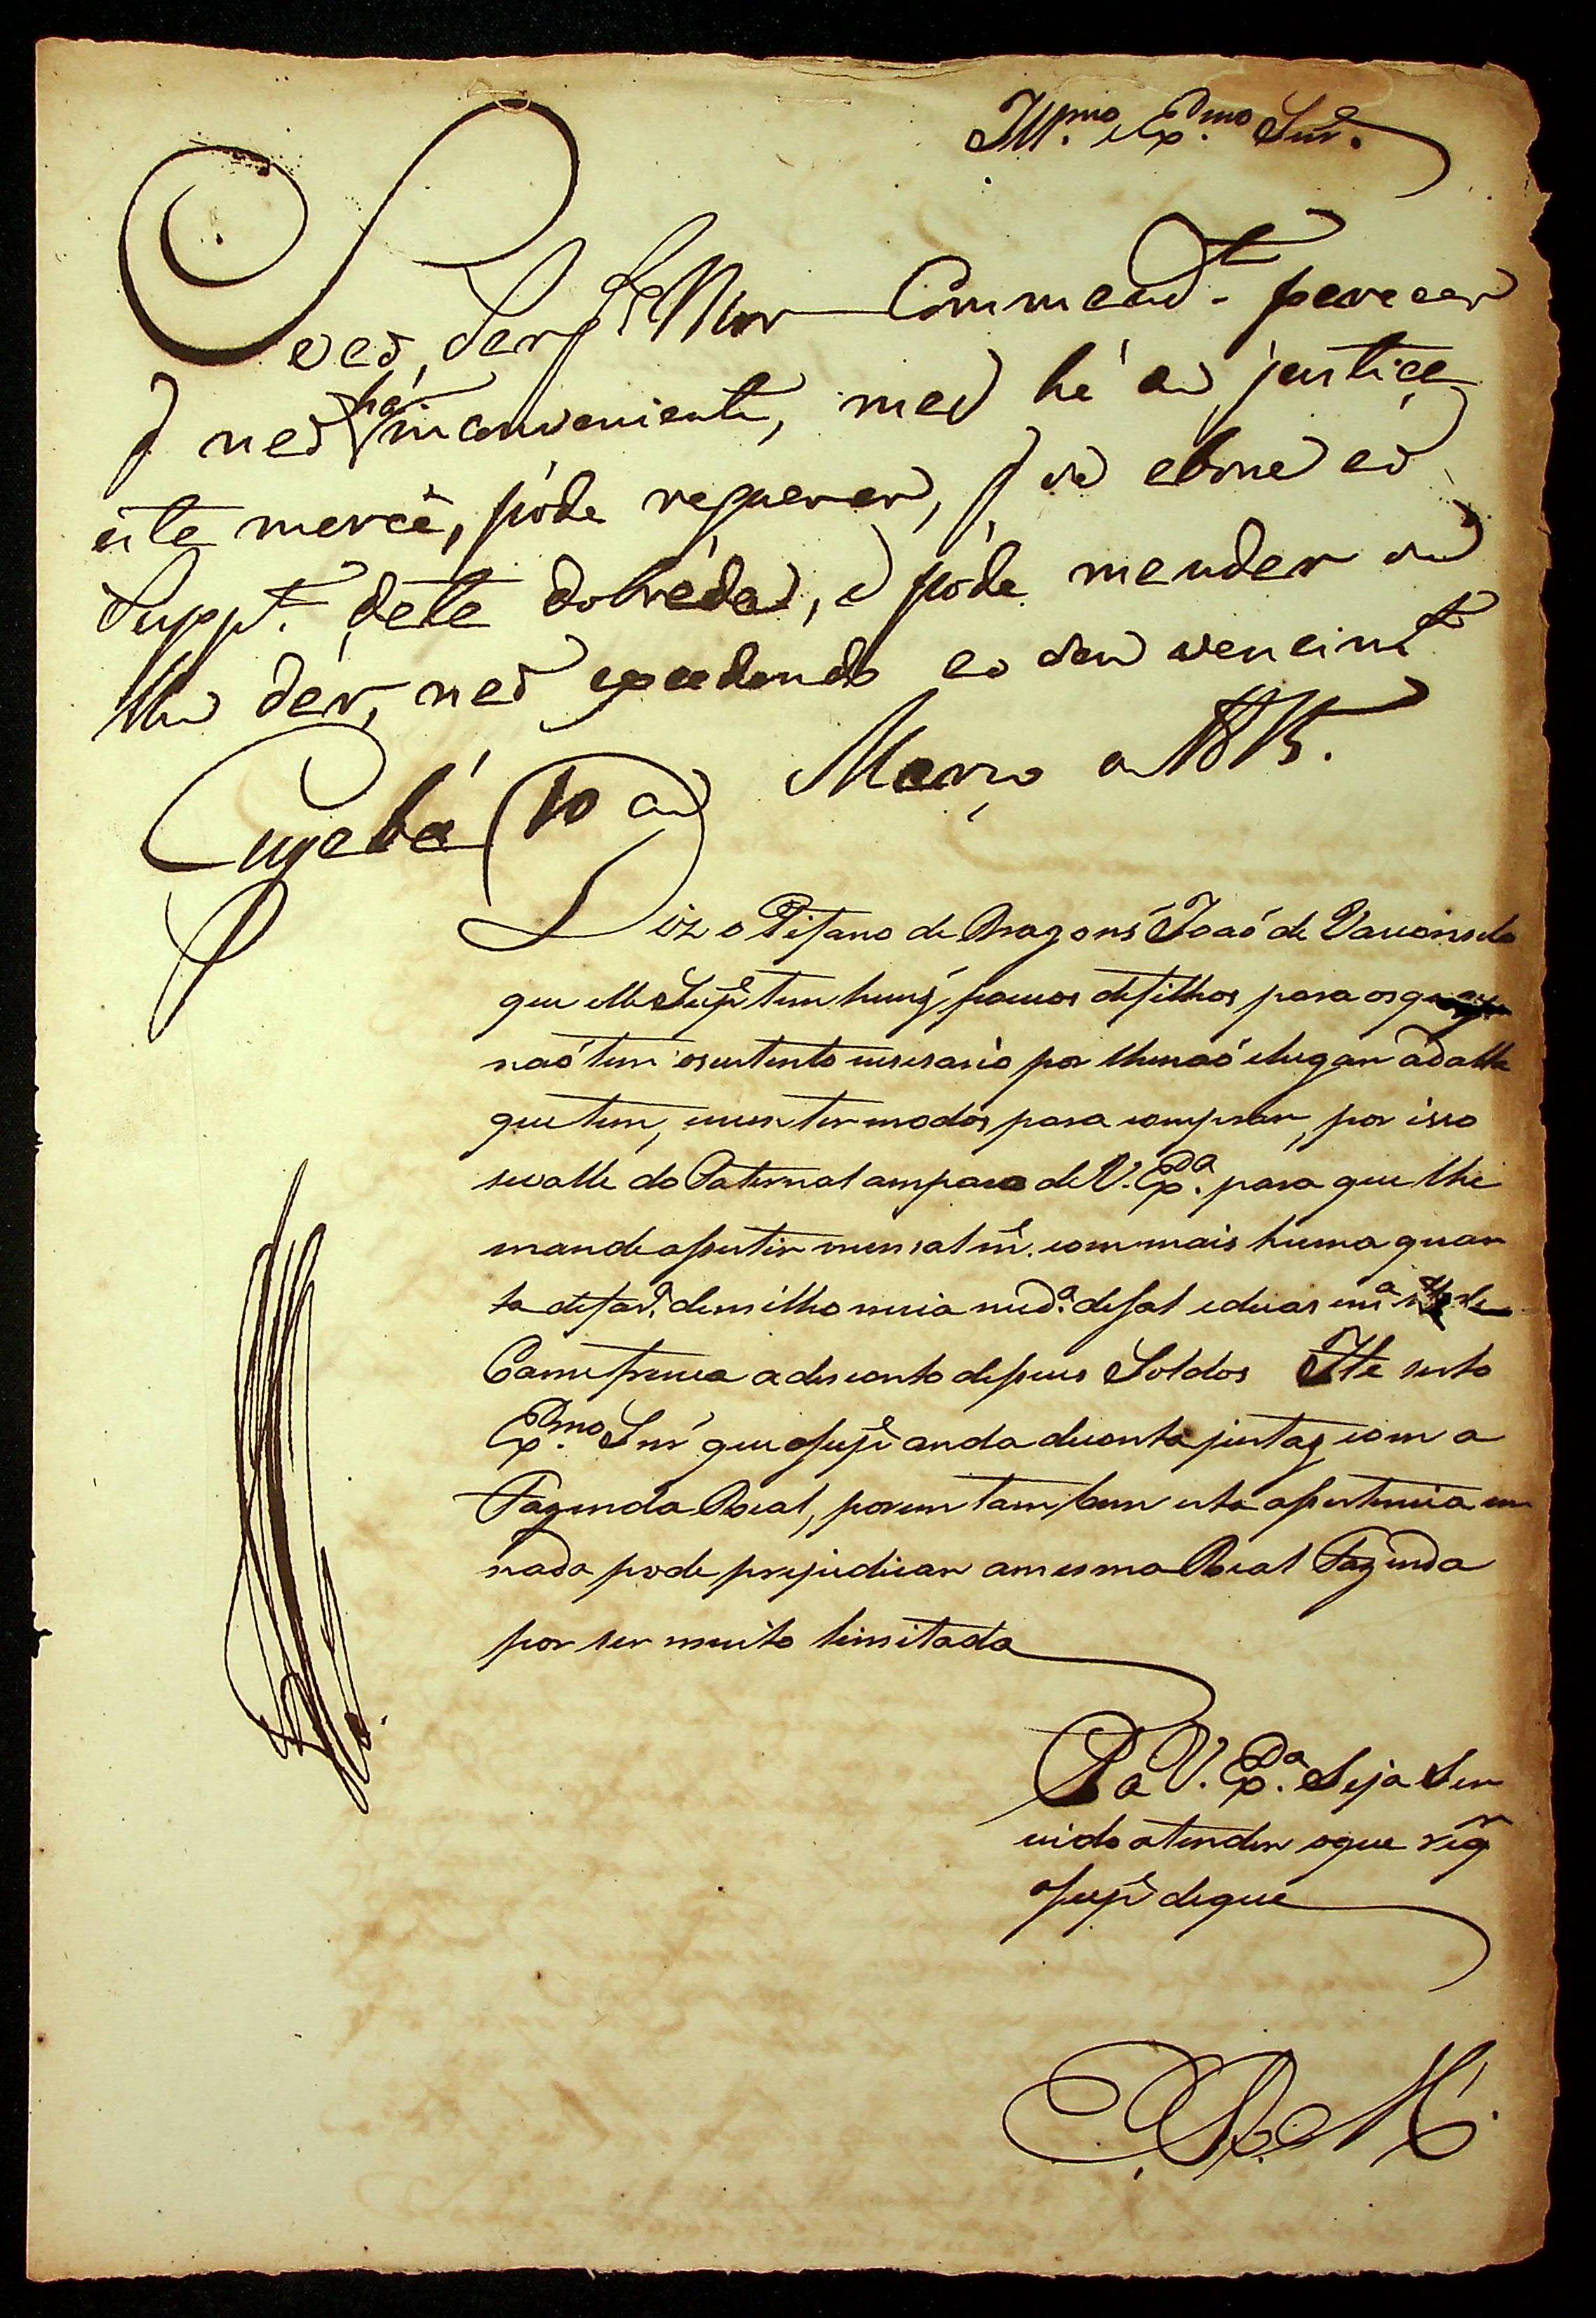 Ill.mo e Ex.mo Snr.
Commend.te parecer
q̃ naõ há inconveniente, mas hé de justiça
esta mercê, póde requerer, q̃ se abone ao
Supp.te dada póde mandar
lhe dár, naõ excedendo ao seu vencim.to
Cuyabá 10 de Março de 1815.
Diz o Pifano de Dragons Joaõ de Vasconcelo
que elle Sup.e tem huns poucos de filhos para os q
naõ tem o sustento necesario por lhe naõ chegar a dalle
que tem, e nem ter modos para comprar, por isso
se valle do Paternal amparo de V. Ex.a para que lhe
mande asestir mensal m.e com mais huma quar
ta de far.a de milho meia med.a de sal e duas de
Carne fresca a desconto de seus Soldos He serto
Ex.mo Snr que o sup.e anda de conta justas com a
Fazenda Real, porem tambem esta asestencia em
nada pode prejudicar a mesma Real Fazenda
por ser muito limitada
P a V. Ex.a Seja Ser
vido atender o que req.r
o sup.e de que
E. R. M.